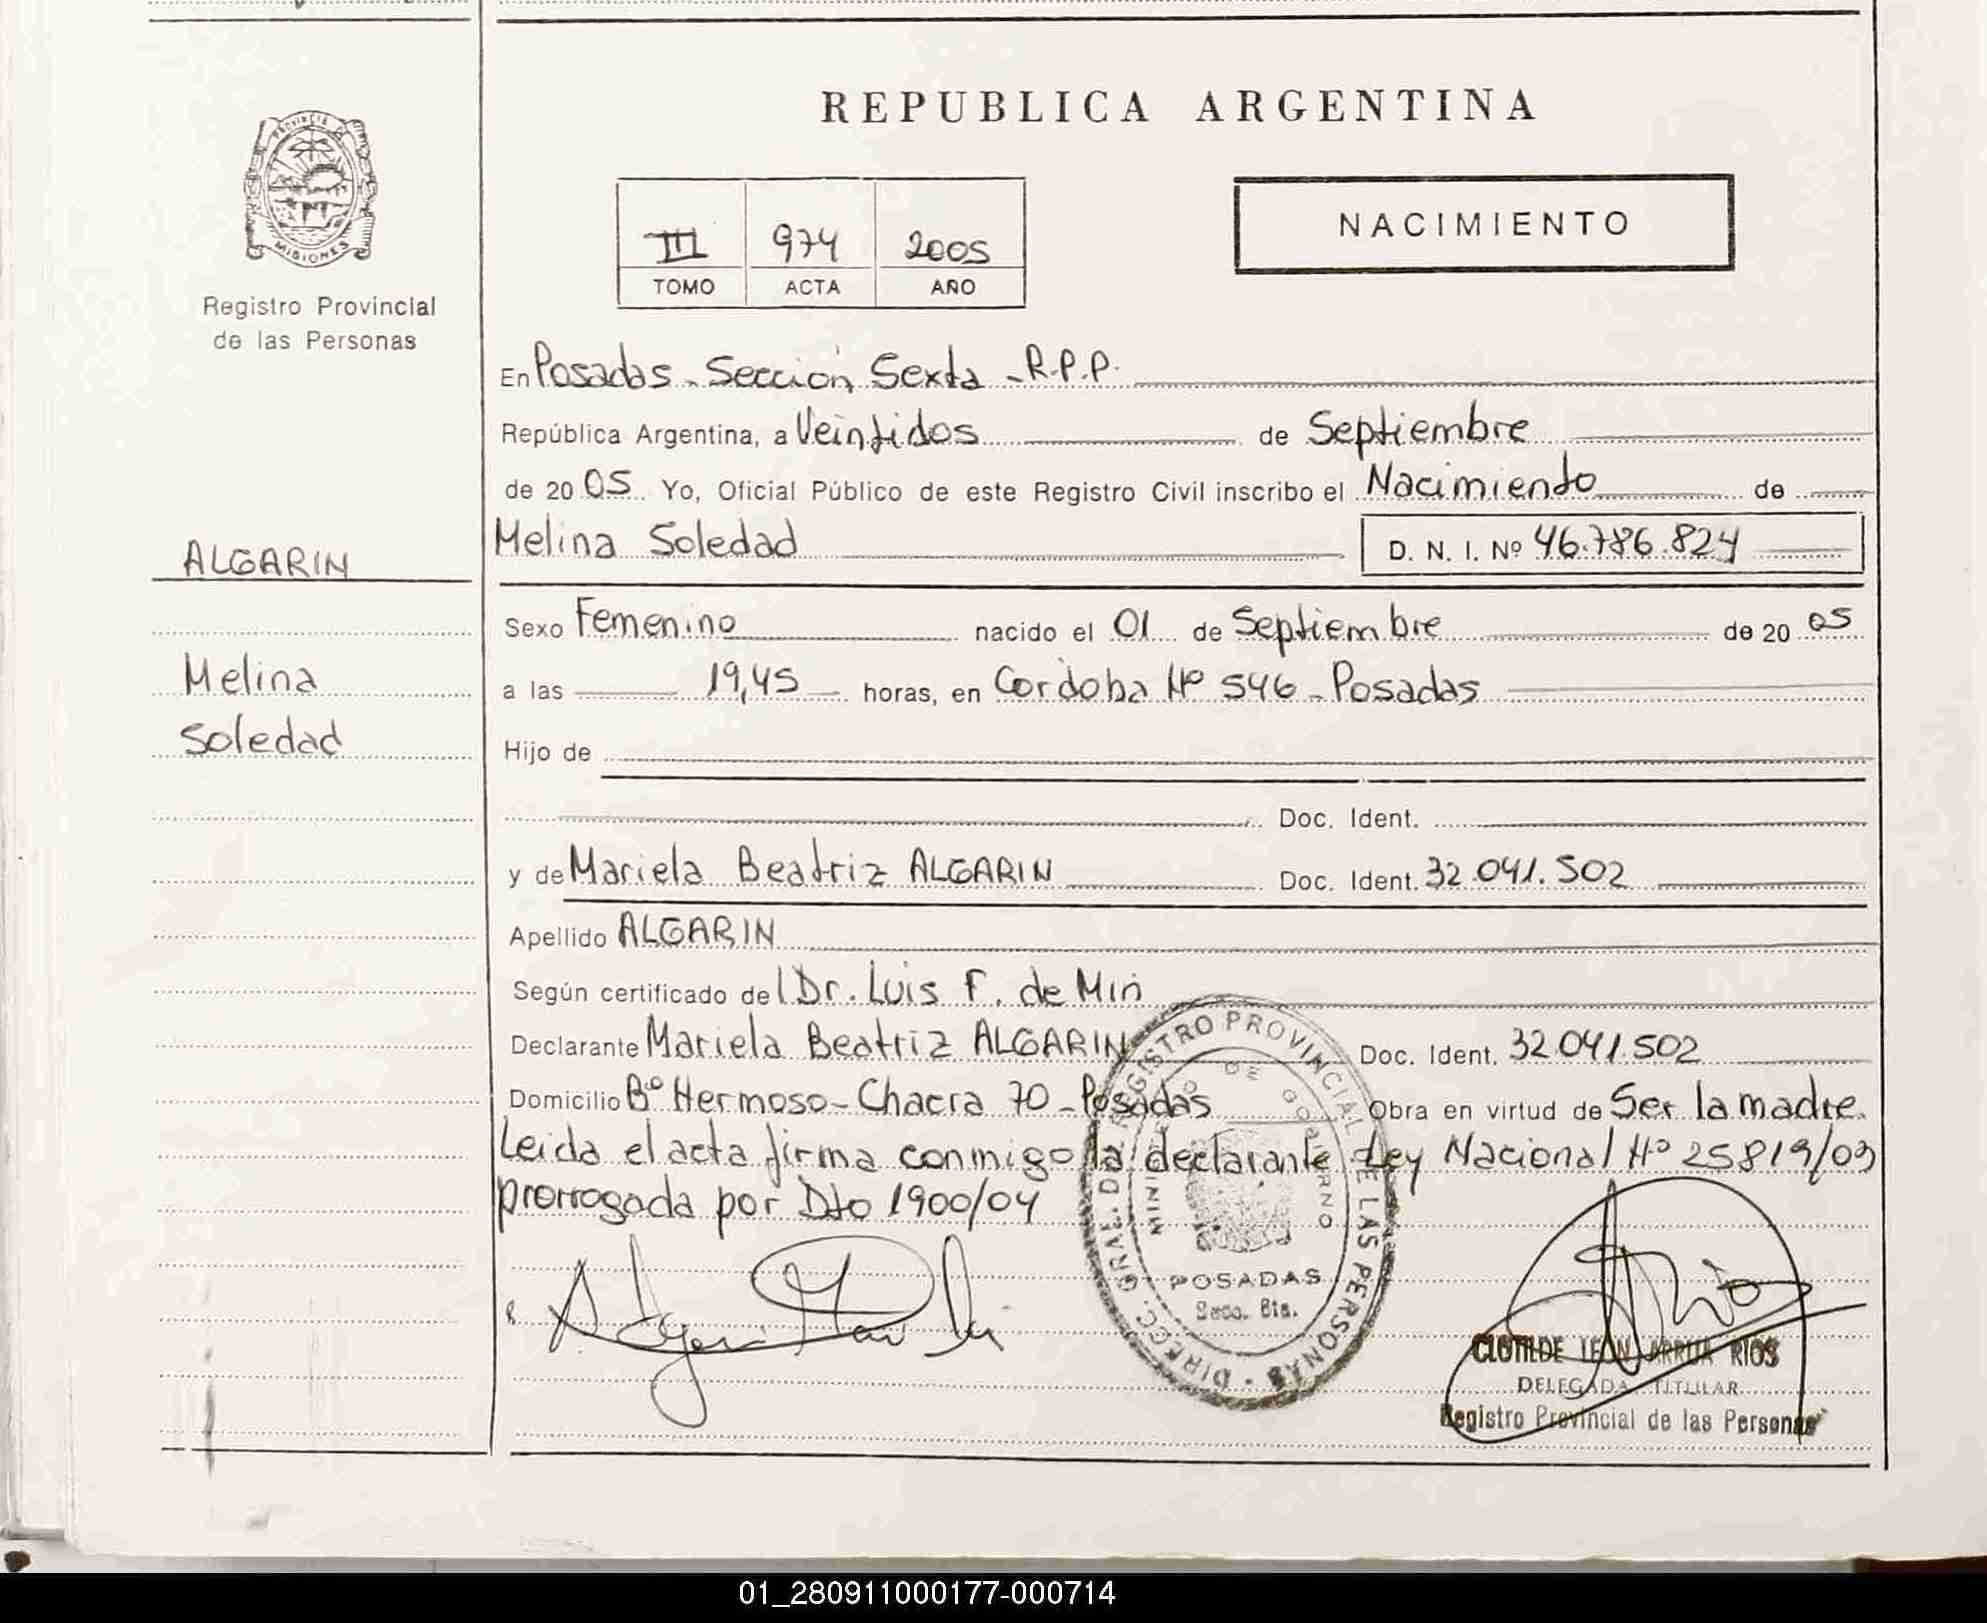 REPUBLICA ARGENTINA
PROVINCIA DE
MISIONES
Registro Provincial
de las Personas
III 974 2005
TOMO ACTA AÑO
NACIMIENTO
ALGARIN
Melina
Soledad
En Posadas - Sección Sexta - R.P.P.
República Argentina, a Veintidos de Septiembre
de 2005 Yo, Oficial Público de este Registro Civil inscribo el Nacimiento de
Melina Soledad D. N. I. Nº 46.786.824
Sexo Femenino nacido el 01 de Septiembre de 20 05
a las 19,45 horas, en Cordoba Nº 546 - Posadas
Hijo de
Doc. Ident.
y de Mariela Beatriz ALGARIN Doc. Ident. 32.041.502
Apellido ALGARIN
Según certificado del Dr. Luis F. de Miri
Declarante Mariela Beatriz ALGARIN Doc. Ident. 32.041.502
Domicilio Bº Hermoso - Chacra 70 - Posadas Obra en virtud de Ser la madre.
Leida el acta firma conmigo la declarante Ley Nacional Nº 25819/03
prorrogada por Dto 1900/04
DIRECC. GRAL. DEL REGISTRO PROVINCIAL DE LAS PERSONAS
MINISTERIO DE GOBIERNO
POSADAS
Secc. 6ta.
CLOTILDE LEON ARRUA RIOS
DELEGADA TITULAR
Registro Provincial de las Personas
01_280911000177-000714